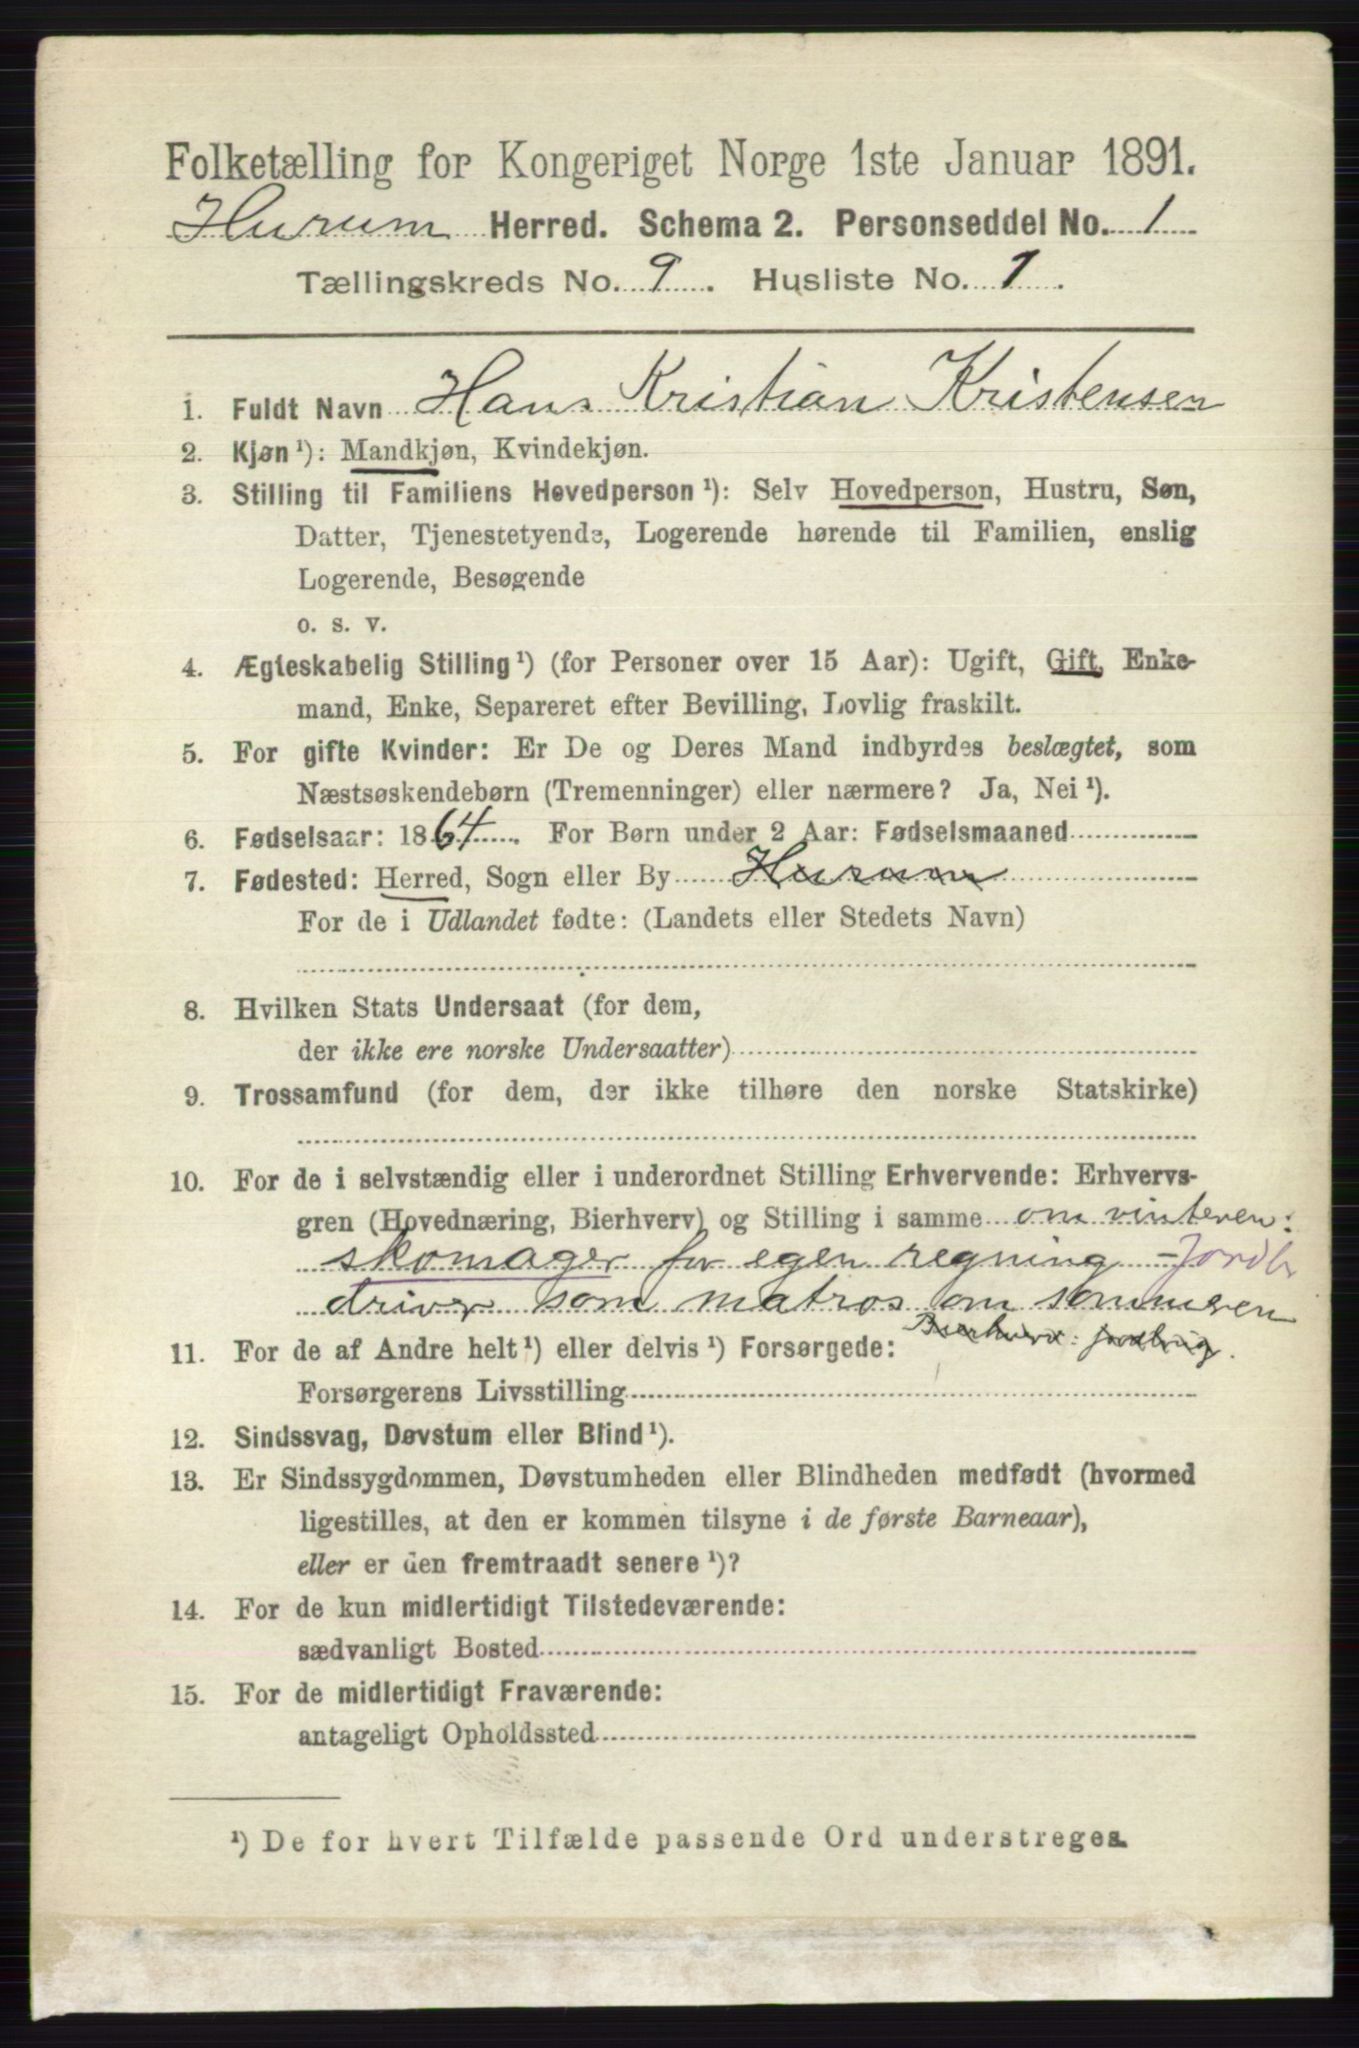 Folketælling for Kongeriget Norge 1ste Januar 1891.
Hurum Herred. Schema 2. Personseddel No. 1
Tællingskreds No. 9. Husliste No. 1.
1. Fuldt Navn Hans Kristian Kristensen
2. Kjøn ¹): Mandkjøn, Kvindekjøn.
3. Stilling til Familiens Hovedperson ¹): Selv Hovedperson, Hustru, Søn,
Datter, Tjenestetyende, Logerende hørende til Familien, enslig
Logerende, Besøgende
o. s. v.
4. Ægteskabelig Stilling ¹) (for Personer over 15 Aar): Ugift, Gift, Enke-
mand, Enke, Separeret efter Bevilling, Lovlig fraskilt.
5. For gifte Kvinder: Er De og Deres Mand indbyrdes beslægtet, som
Næstsøskendebørn (Tremenninger) eller nærmere? Ja, Nei ¹).
6. Fødselsaar: 1864. For Børn under 2 Aar: Fødselsmaaned
7. Fødested: Herred, Sogn eller By Hurum
For de i Udlandet fødte: (Landets eller Stedets Navn)
8. Hvilken Stats Undersaat (for dem,
der ikke ere norske Undersaatter)
9. Trossamfund (for dem, der ikke tilhøre den norske Statskirke)
10. For de i selvstændig eller i underordnet Stilling Erhvervende: Erhvervs-
gren (Hovednæring, Bierhverv) og Stilling i samme om vinteren:
skomager for egen regning - Jordb
driver som matros om sommeren
Bierhverv: jordbrug.
11. For de af Andre helt ¹) eller delvis ¹) Forsørgede:
Forsørgerens Livsstilling
12. Sindssvag, Døvstum eller Blind ¹).
13. Er Sindssygdommen, Døvstumheden eller Blindheden medfødt (hvormed
ligestilles, at den er kommen tilsyne i de første Barneaar),
eller er den fremtraadt senere ¹)?
14. For de kun midlertidigt Tilstedeværende:
sædvanligt Bosted
15. For de midlertidigt Fraværende:
antageligt Opholdssted
¹) De for hvert Tilfælde passende Ord understreges.